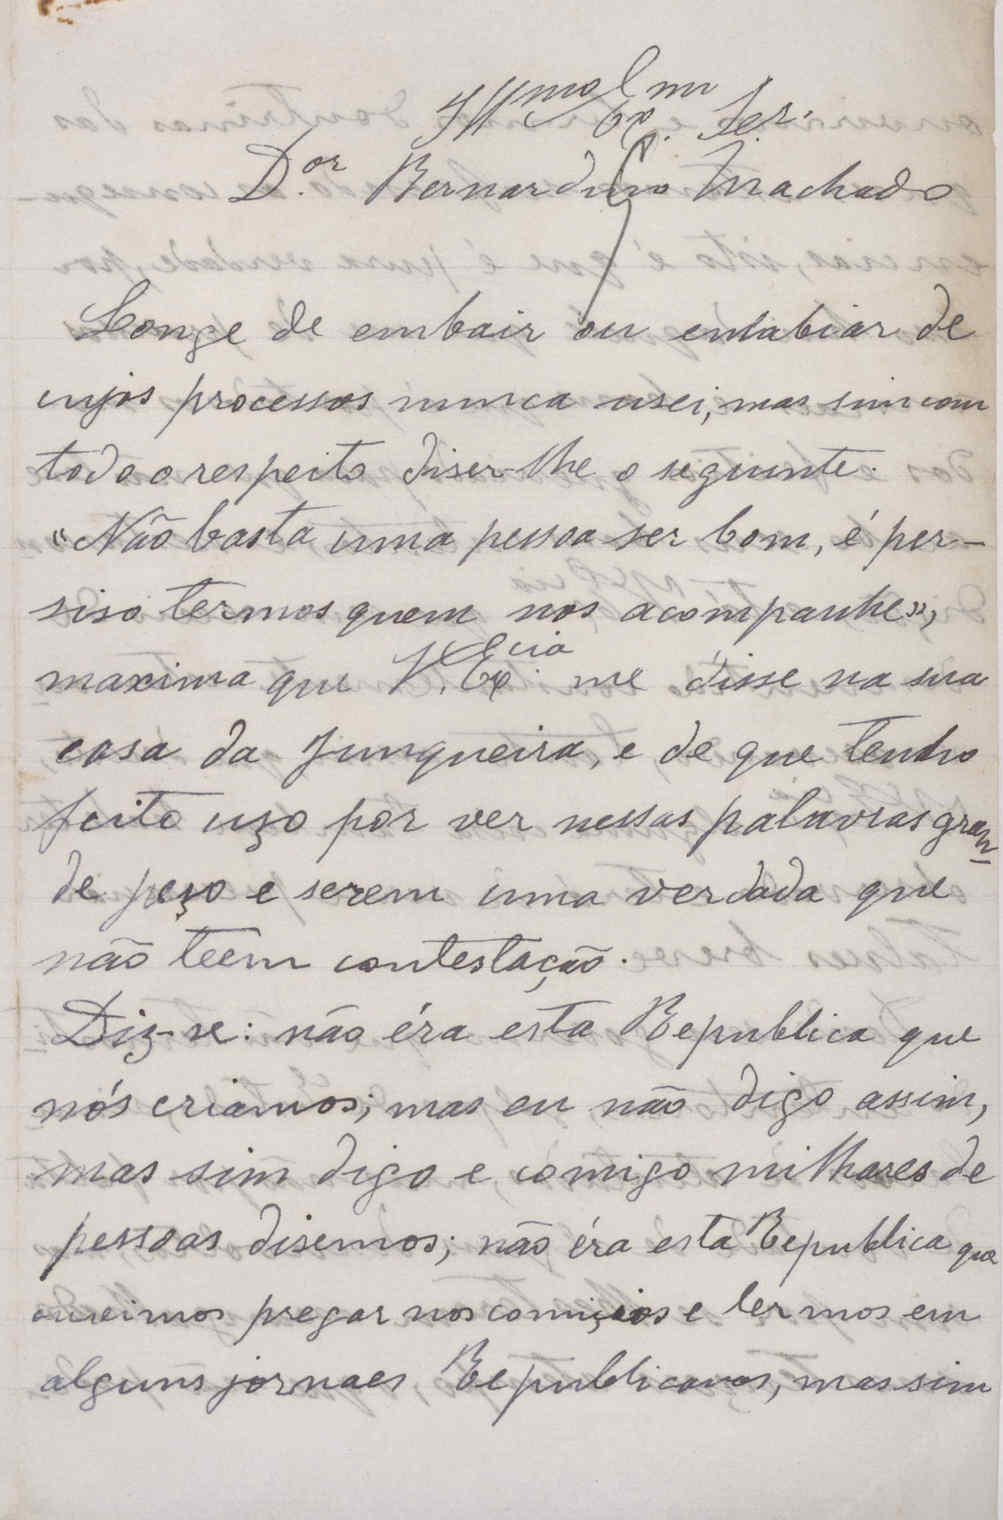 Illmo Exmo Ser.
D.or Bernardino Machado
Longe de embair ou enlabiar de
cujos processos nunca usei, mas sim com
todo o respeito diser-lhe o seguinte.
"Não basta uma pessoa ser bom, é per-
siso termos quem nos acompanhe",
maxima que V. Excia me disse na sua
casa da Junqueira, e de que tenho
feito uzo por ver nessas palavras gran-
de pezo e serem uma verdada que
não teem contestação.
Diz-se: não éra esta Republica que
nós criamos; mas eu não digo assim,
mas sim digo e comigo milhares de
pessoas disemos; não éra esta Republica que
ouvimos pregar nos comiçios e lermos em
alguns jornaes Republicanos, mas sim